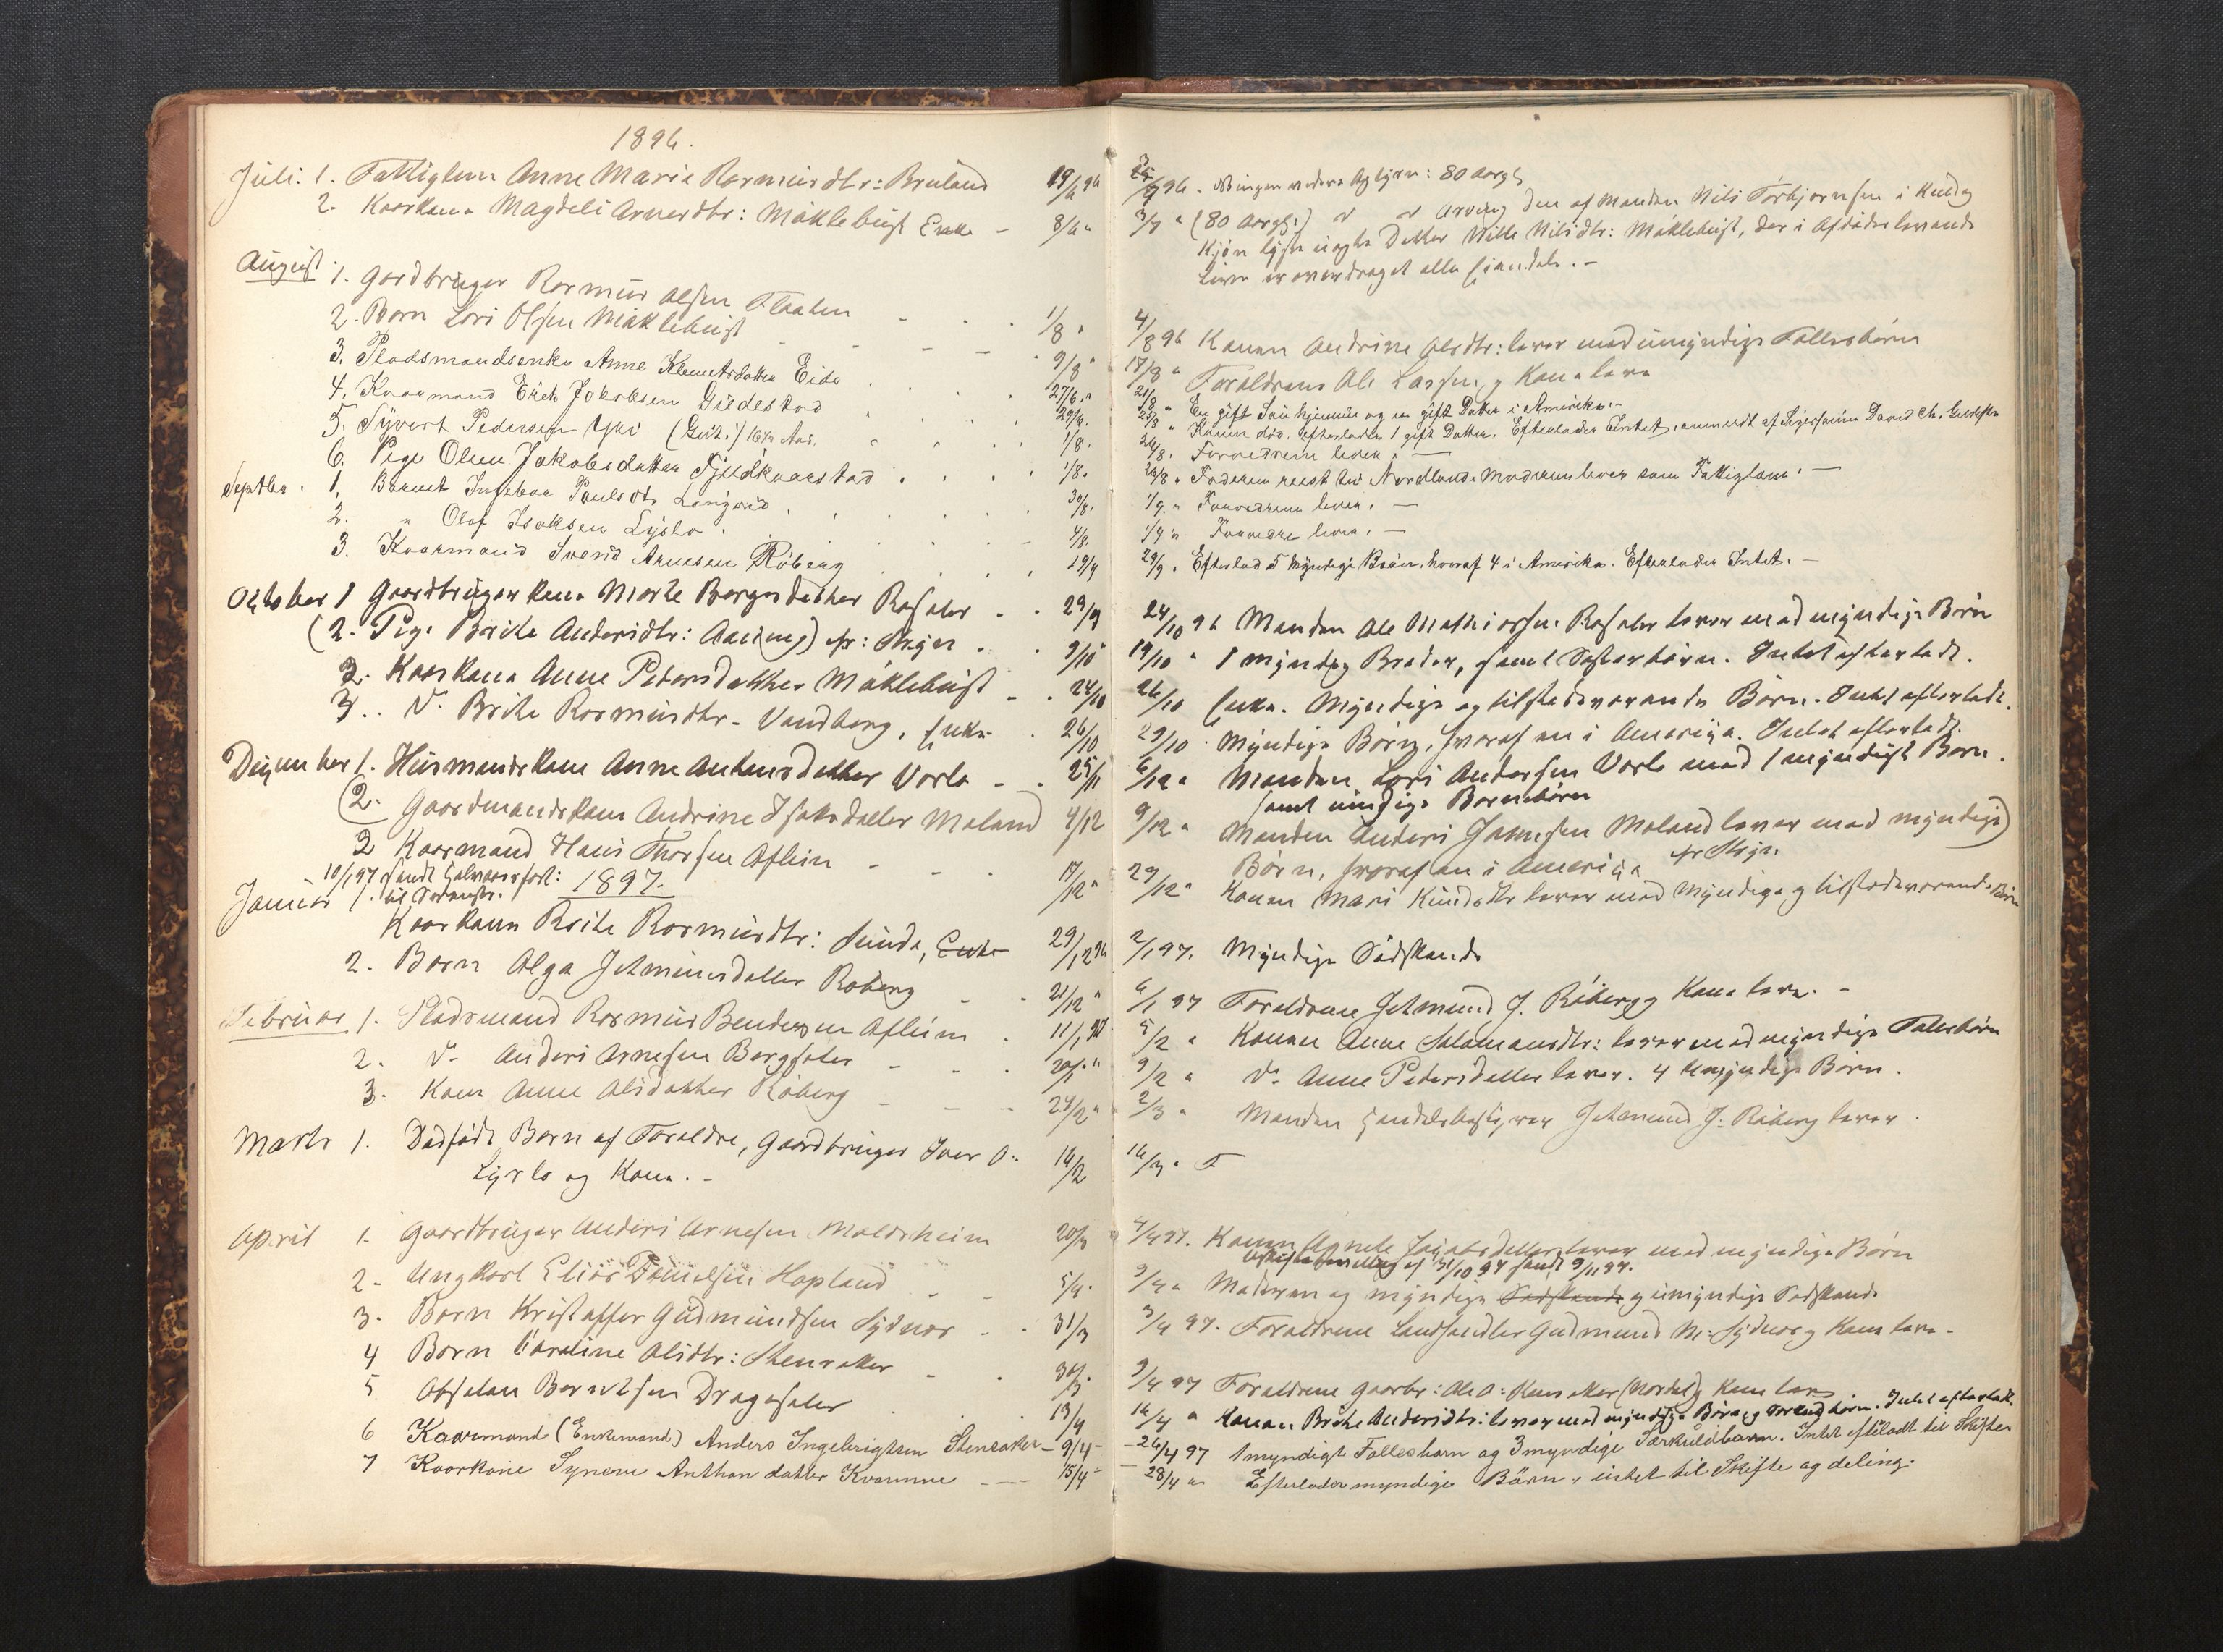 1896.
Juli. 1. Fattiglem Anne Marie Rasmusdtr: Bruland 19/6 96
2. Kaarkone Magdeli Arnesdtr: Myklebust Enke - 8/6 "
August 1. Gardbruger Rasmus Olsen Flaaten - - 1/8 "
2. Barn Lars Olsen Myklebust - - - - 9/8 "
3. Pladsmandsenke Anne Klemetsdatter Eide 27/6 "
4. Kaarmand Erick Jakobsen Gildestad 29/6.
5. Sivert Pedersen 1/8.
6. Pige Oline Jakobsdatter 1/8.
Septbr. 1. Barnet Ingebor Paulsdtr 30/8.
2. " Olaf Isaksen Lyslo 4/8.
3. Kaarmand Svend Arnesen Råberg 19/9
October 1 Gaardbrugerkone Marte Børgesdatter Rosæter - - 29/9
(2. Pige Brite Andersdtr: pr: Stryn . 9/10
2. Kaarkone Anne Pedersdatter Myklebust - - 24/10
3. D. Brite Rasmusdtr. Vandberg, Enke . 26/10
December 1. Husmandskone Anne Antonsdatter Vorle - - 25/11
(2. Gaardmandskone Andrine Isaksdatter Moland 4/12
2 Kaarmand Hans Thorsen Aflein - - - 17/12 "
10/1 97 sendt
1897.
Januar 1. Kaarkone Brite Rasmusdtr: Sunde, Enke 29/12 96
2. Barn Olga Jetmundsdatter Råberg - - 21/12 "
Februar 1. Pladsmand Rasmus Bendixen Aflein . 11/1 97
2. D. Anders Arnesen Bergsæter - - - 20/1 "
3. Kone Anne Olsdatter Råberg - - - 24/2 "
Marts 1. Dødfødt Barn af Forældre, Gaardbruger Iver O: 14/2
Lyslo og Kone. -
April 1. Gaardbruger Anders Arnesen Maldsheim 20/3
2. Ungkarl Elias Hopland - - 5/4.
3. Barn Kristoffer Gudmundsen Sydnes - - 31/3
4 Barn Caroline Olsdtr: Stensaker - - 30/3.
5 Absalon Berntsen Dragesæter . . . 13/4
6 Kaarmand (Enkemand) Anders Ingebrigtsen Stensaker - 9/4 -
7 Kaarkone Synneve Anthon datter Kvamme - - 15/4 -
96. Ningen nedre Afkom: 80 Aar gl
3/7 " (80 Aar gl:) Arving den af Manden Nils Torbjørnsen i Kuld og
Kjøn lyste uægte Datter Nille Nilsdtr: Myklebust, der i Afdødes levende
Live er overdraget alle Eiendele. -
4/8 96 Konen Andrine Olsdtr: lever med umyndige Fællesbørn
17/8 " Forældrene Ole Larsen og Kone leve
21/8 " En gift Søn hjemme og en gift Datter i Amerika. -
25/8 " Konen død, efterlader 1 gift Datter. Efterlader Intet, anmeldt af
26/8. Forældrene lever. -
26/8 " Faderen reist til Nordland. Moderen lever som Fattiglem. -
1/9. " Forældrene lever. -
1/9 " Forældre lever. -
29/9. Efterlod 5 Myndige Børn, hvoraf 4 i Amerika. Efterlader Intet. -
24/10 96 Manden Ole Mathiassen Rosæter lever med myndige Børn
19/10 " 1 myndig Broder, samt Søsterbørn. Intet efterladt.
26/10 Enke. Myndige og tilstedeværende Børn. Intet efterladt.
29/10 Myndige Børn, hvoraf en i Amerika. Intet efterladt.
6/12 " Manden Lars Andersen Vorle med 1 myndigt Barn.
samt umyndige Børnebørn
9/12 " Manden Anders Johnesen Moland lever med myndige)
Børn, hvoraf en i Amerika pr Stryn.
29/12 " Konen Mari Knudsdtr lever med Myndige og tilstedeværende Børn
2/1 97. Myndige Sødskende
6/1 97 Forældrene Jetmund J. Råberg og Kone leve. -
5/2 " Konen Anne Salamonsdtr: lever med myndige Fællesbørn
9/2 " D. Anne Pedersdatter lever. 4 Umyndige Børn.
2/3 " Manden Handelsbestyrer Jetmund J. Råberg lever.
16/3 " F
4/4 97. Konen Agnete Jakobsdatter lever med myndige Børn
af 31/10 97 sendt 9/11 97.
9/4 " Moderen og myndige Sødskende og umyndige Sødskende
3/4 97. Forældrene Landhandler Gudmund N: Sydnes og Kone leve -
9/4 97 Forældrene Gaardbr: Ole O: Stensaker (Nordal) og Kone leve
14/4 " Konen Brite Andersdtr: lever med myndige Børn og Intet efterladt.
- 26/4 97 1 myndigt Fællesbarn og 3 myndige Særkuldbarn. Intet efterladt til Skifte.
- 28/4 " Efterlader myndige Børn, intet til Skifte og deling.